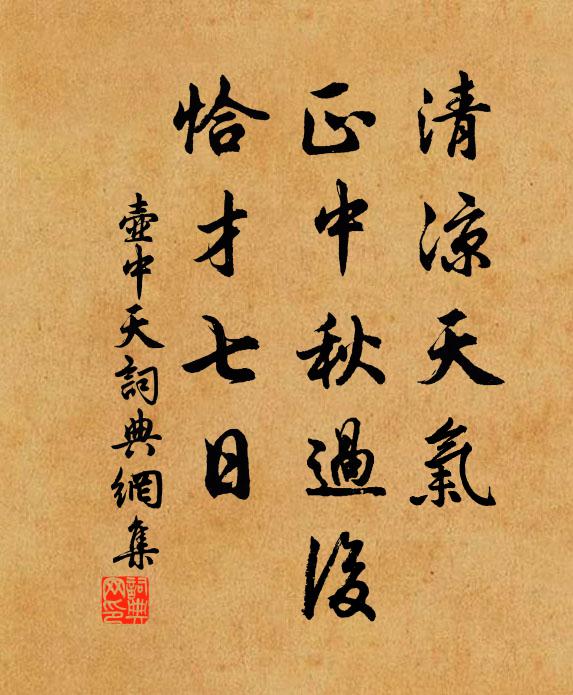 清涼天氣
正中秋過後
恰才七日
壺中天詞典網集
詞典網印